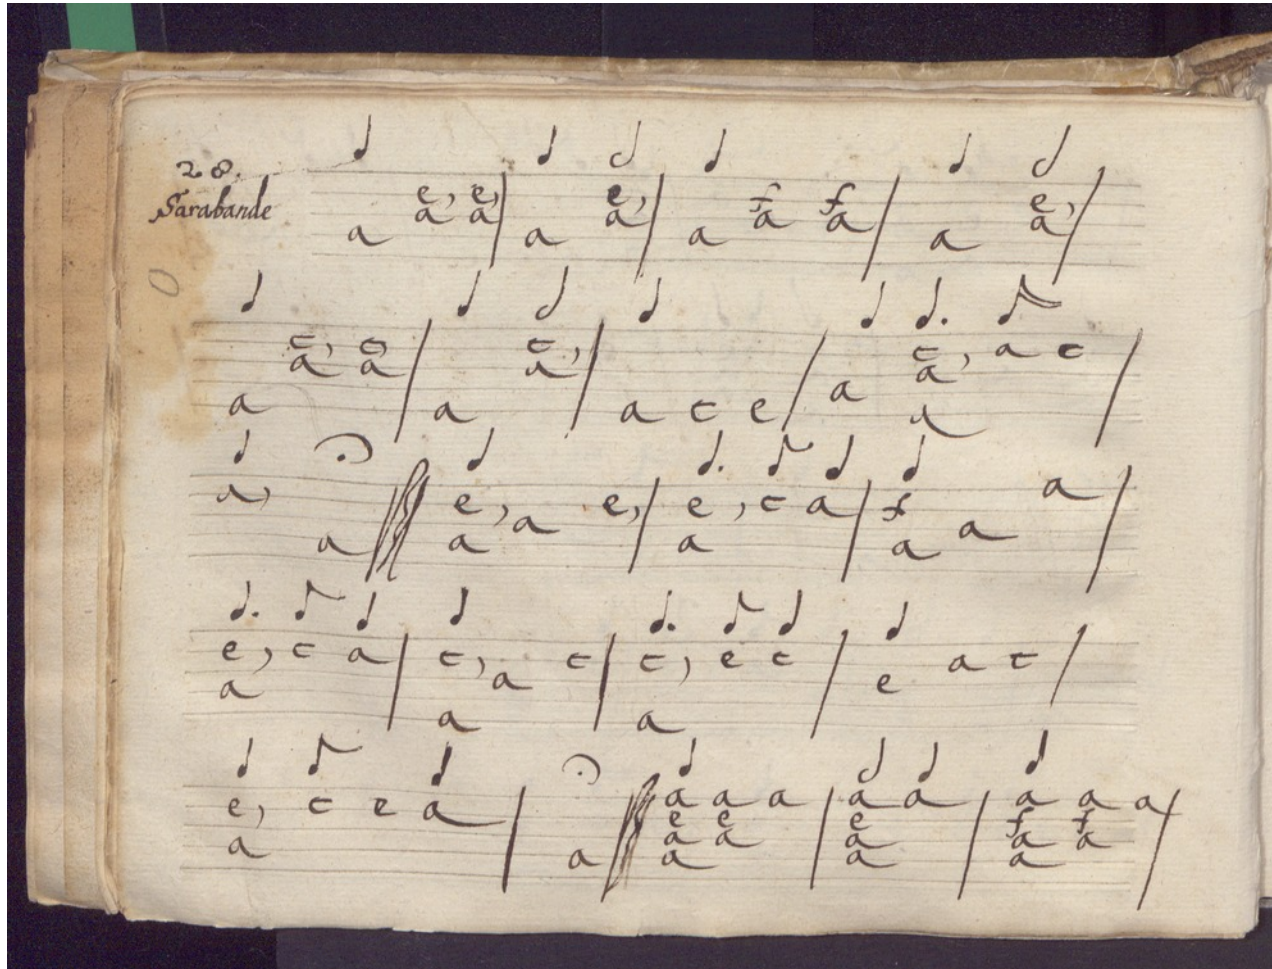 28.
Sarabande
a e a e a a e a a f a f a a e a
a c a c a a c a a c e a c a a a c
a a e a a e e a c a f a a a
e a c a c a a c c a e c e a c
e a c e a a a e a a a e a a a e a a a a f a a a f a a